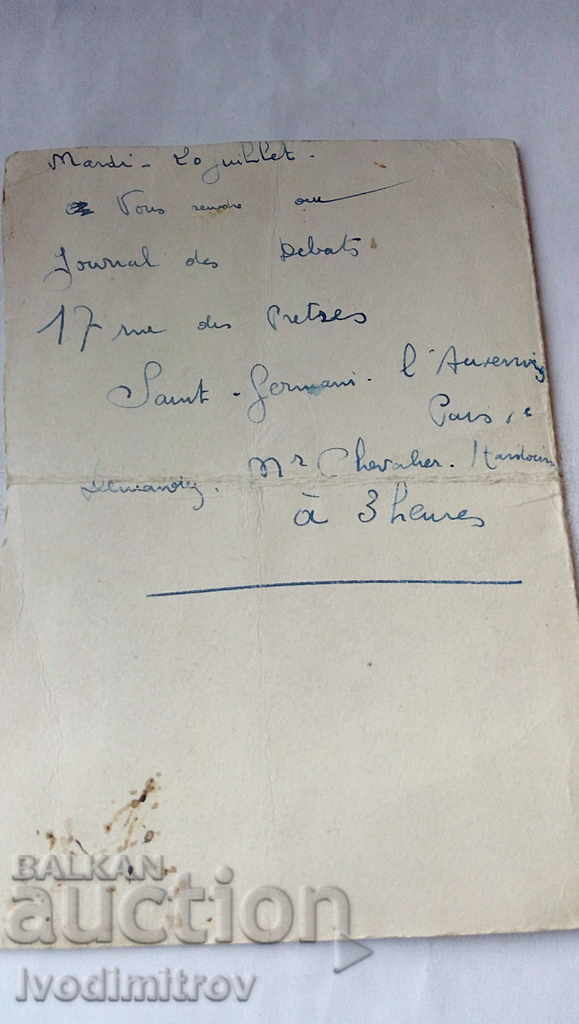 Mardi - 20 juillet.
Vous rendre au
Journal des Debats
17 rue des Pretres
Saint - Germain - l'Auxerrois
Paris 1e
Demandez. Mr Chevalier. Hardouin
à 3 heures
BALKAN
auction
Ivodimitrov